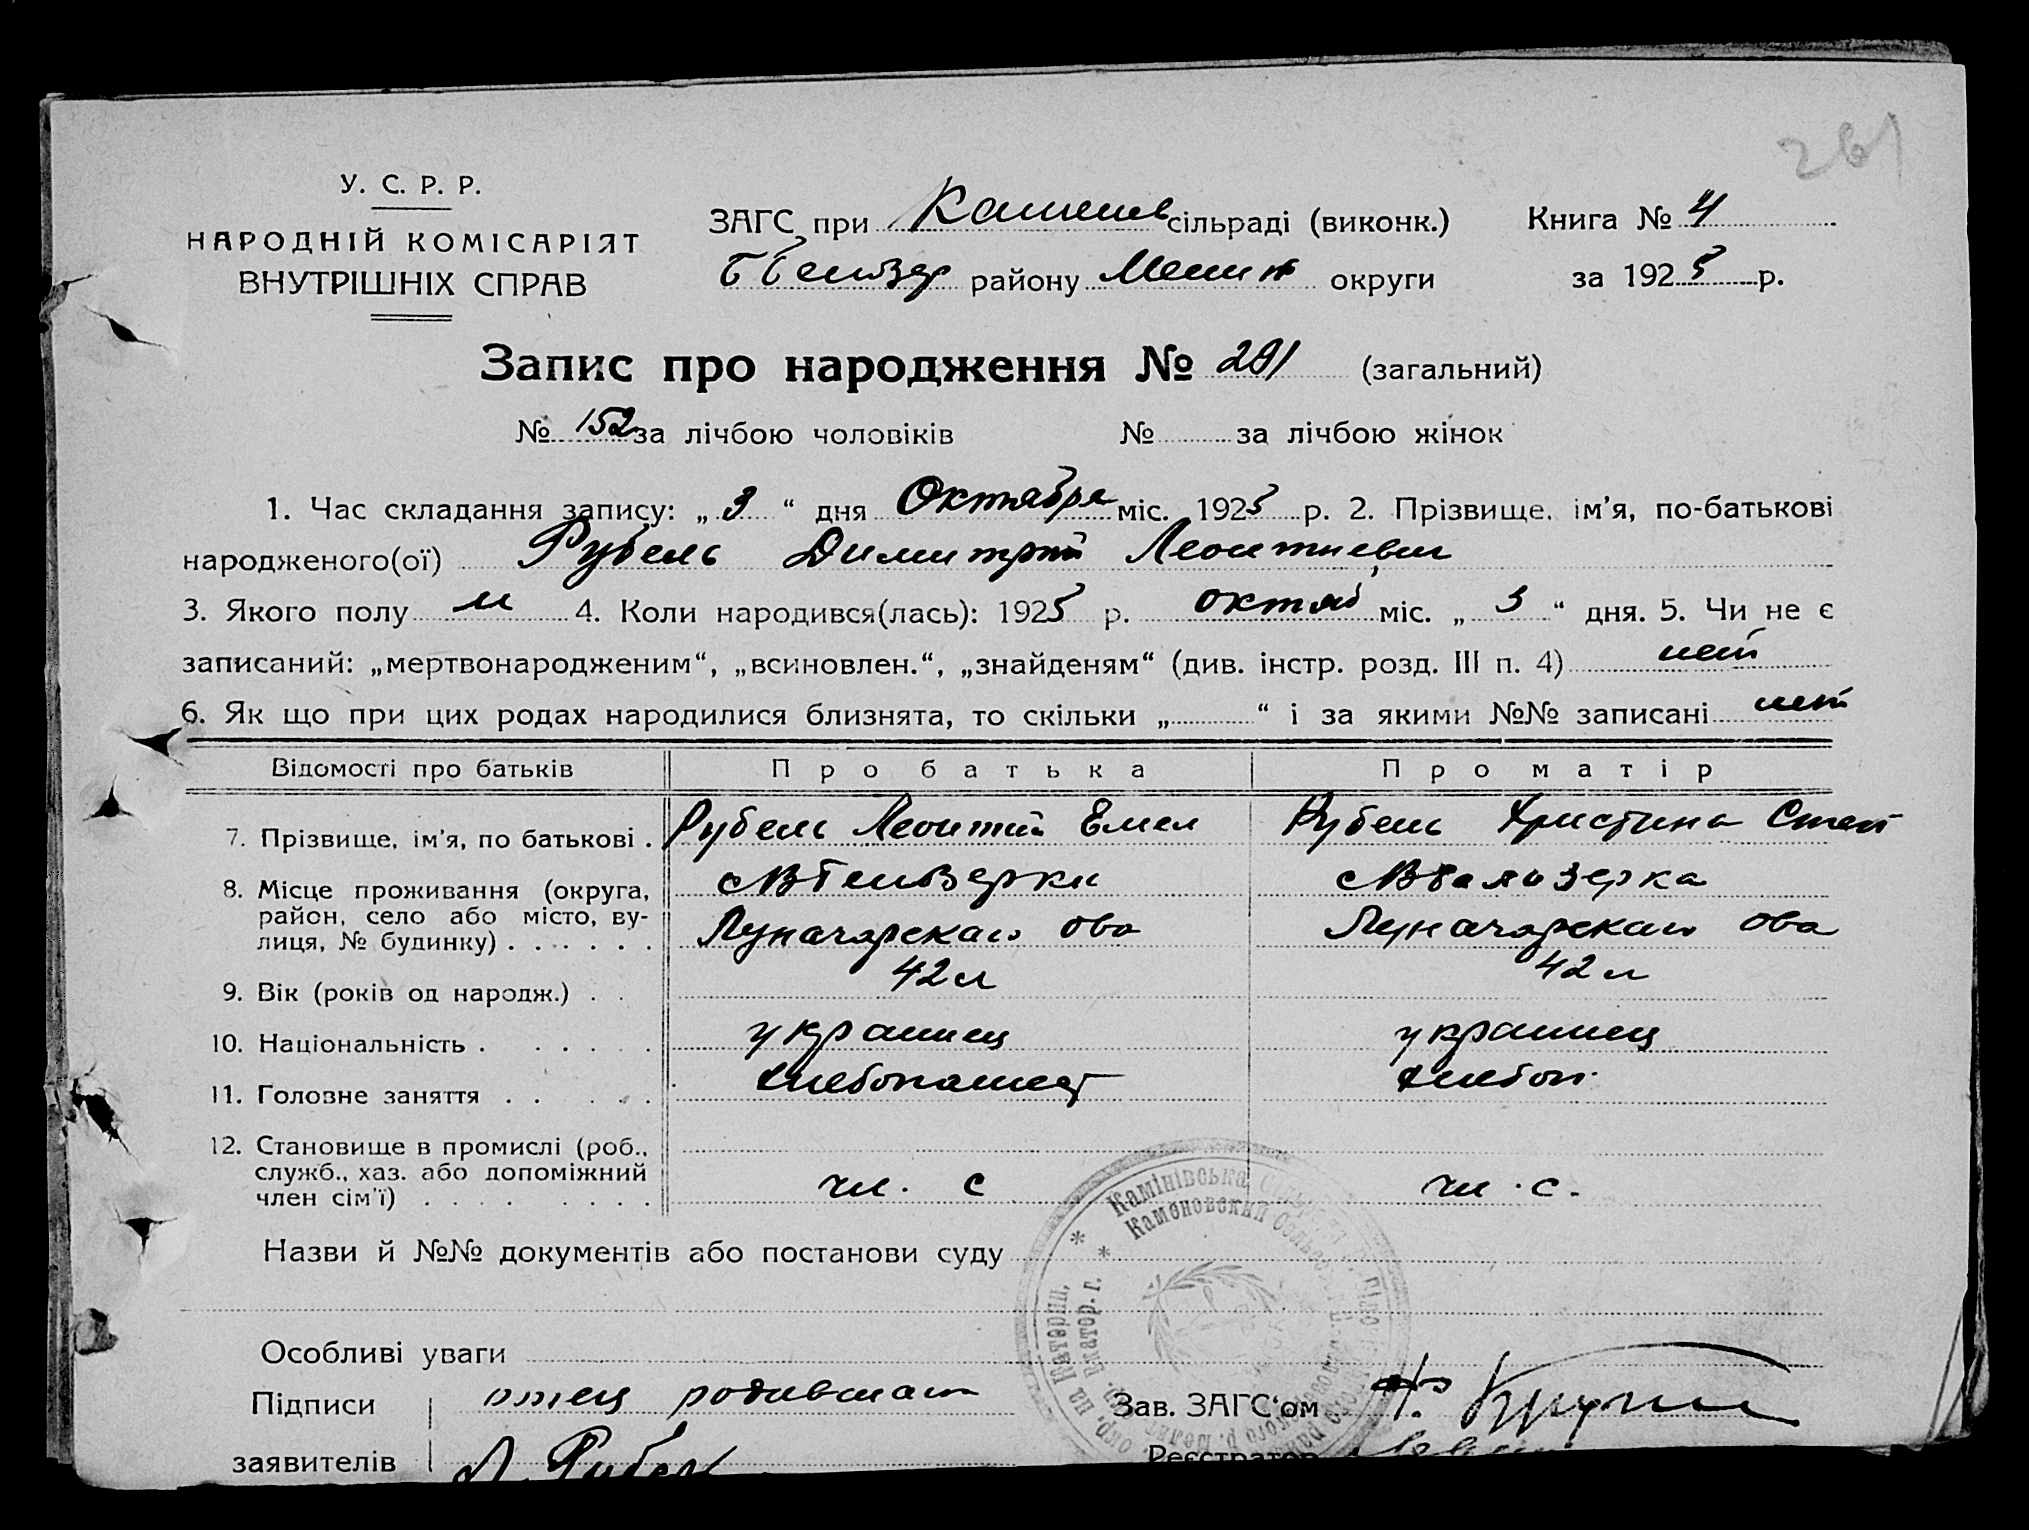 261
У. С. Р. Р.
НАРОДНІЙ КОМІСАРІЯТ
ВНУТРІШНІХ СПРАВ
ЗАГС при Камянев сільраді (виконк.)
Книга № 4
району Мелит округи
за 1925 р.
Запис про народження № 291 (загальний)
№ 152 за лічбою чоловіків № за лічбою жінок
1. Час складання запису: „ 3 “ дня Октября міс. 1925 р. 2. Прізвище, ім’я, по-батькові
народженого(ої) Рубель Димитрий Леонтиевич
3. Якого полу м 4. Коли народився(лась): 1925 р. октяб міс. „ 3 “ дня. 5. Чи не є
записаний: „мертвонародженим“, „всиновлен.“, „знайденям“ (див. інстр. розд. III п. 4) нет
6. Як що при цих родах народилися близнята, то скільки „ “ і за якими №№ записані нет
Відомості про батьків Про батька Про матір
7. Прізвище, ім’я, по батькові . Рубель Леонтий Емел Рубель Христина Степ
8. Місце проживання (округа,
район, село або місто, ву-
лиця, № будинку) . . . . . .
Луначарскаго ова Луначарскаго ова
9. Вік (років од народж.) . . 42 л 42 л
10. Національність . . . . . . украинец украинец
11. Головне заняття . . . . . хлебопашец хлебоп.
12. Становище в промислі (роб.,
служб., хаз. або допоміжний
член сім’ї) . . . . . . . чл. с чл. с.
Назви й №№ документів або постанови суду
Камінівська
Каменовский
Особливі уваги
Підписи
заявителів
отец
Л. Рубель
Зав. ЗАГС‘ом
Реєстратор